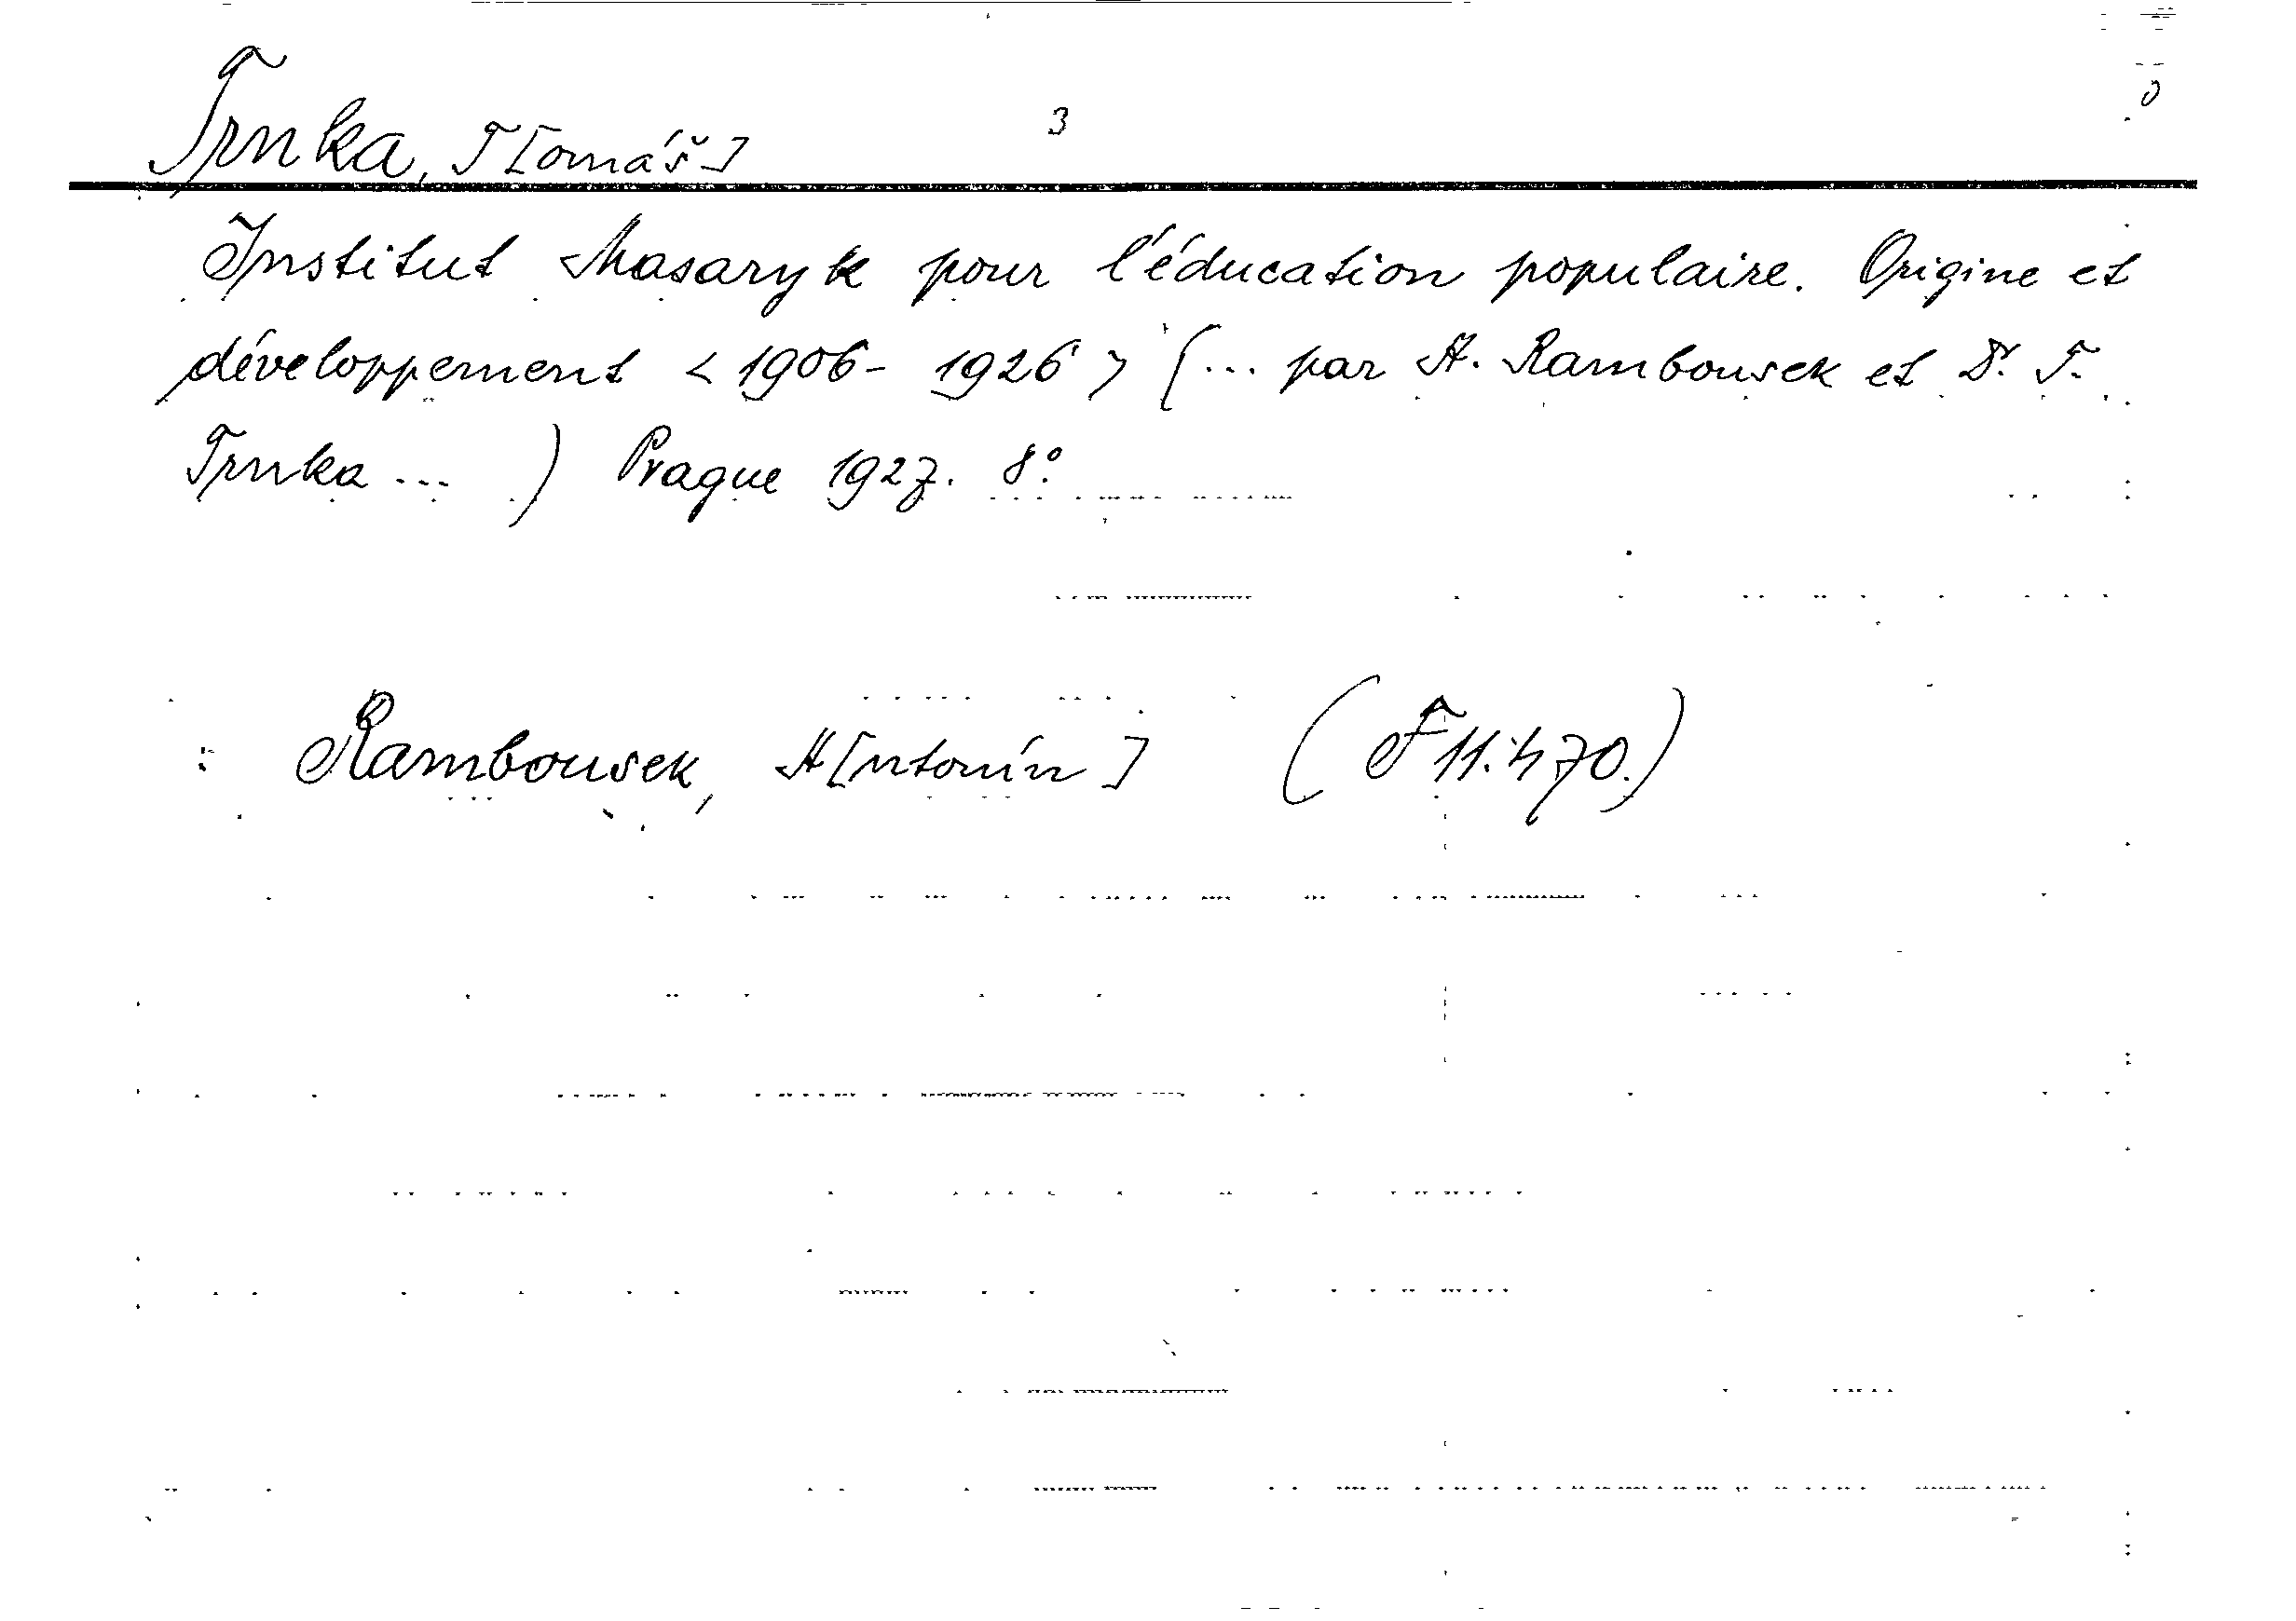 Trnka, T[omáš] 3
Institut Masaryk pour l'éducation populaire. Origine et
développement <1906-1926> (... par A. Rambousek et Dr. T.
Trnka ... ) Prague 1927. 8°.
Rambousek, A[ntonín] (F 11.470.)